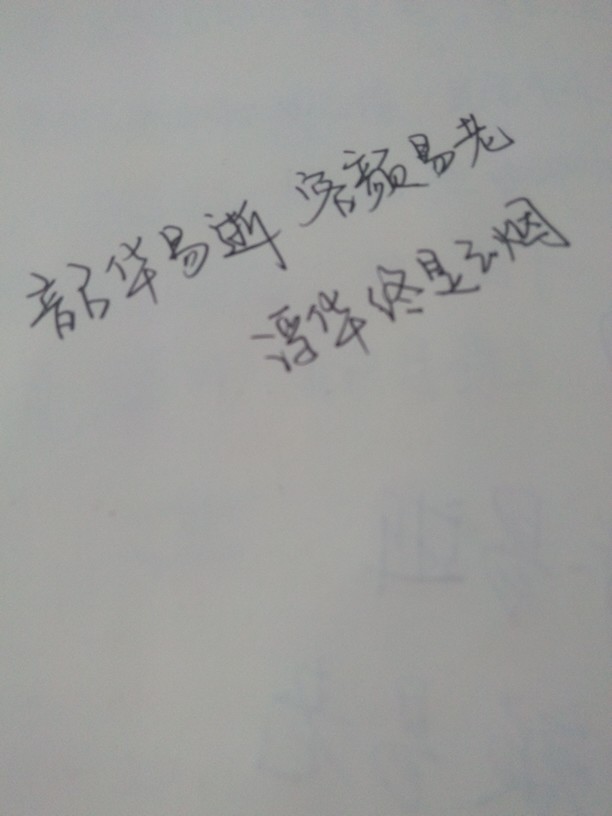 韶华易逝 容颜易老
浮华终是云烟